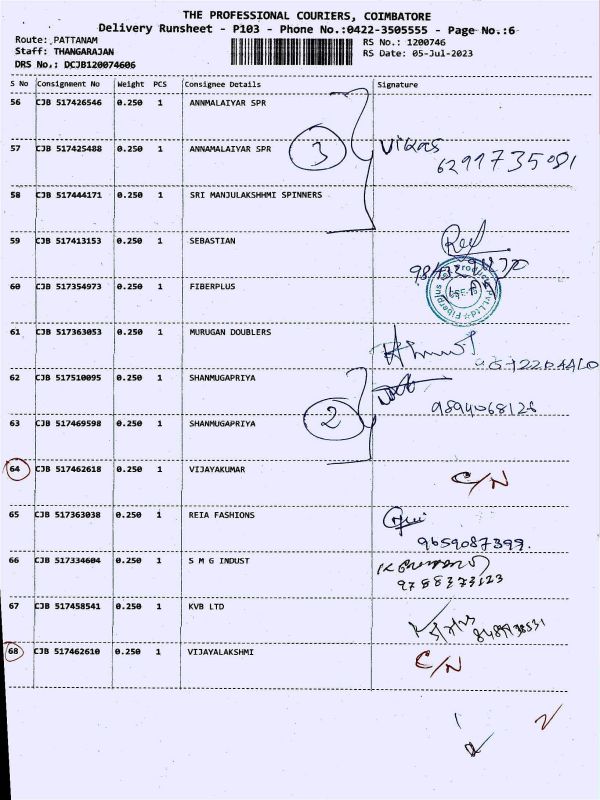 THE PROFESSIONAL COURIERS, COIMBATORE
Delivery Runsheet - P103 - Phone No.:0422-3505555 - Page No.:6
Route: PATTANAM
RS No.: 1200746
Staff: THANGARAJAN
RS Date: 05-Jul-2023
DRS No.: DCJB120074606
S No Consignment No Weight PCS Consignee Details Signature
56 CJB 517426546 0.250 1 ANNMALAIYAR SPR
57 CJB 517425488 0.250 1 ANNAMALAIYAR SPR 3 Vikas
6291735081
58 CJB 517444171 0.250 1 SRI MANJULAKSHHMI SPINNERS
59 CJB 517413153 0.250 1 SEBASTIAN
60 CJB 517354973 0.250 1 FIBERPLUS
61 CJB 517363053 0.250 1 MURUGAN DOUBLERS
62 CJB 517510095 0.250 1 SHANMUGAPRIYA
2 9894068126
63 CJB 517469598 0.250 1 SHANMUGAPRIYA
64 CJB 517462618 0.250 1 VIJAYAKUMAR C/N
65 CJB 517363038 0.250 1 REIA FASHIONS
9659087399.
66 CJB 517334604 0.250 1 S M G INDUST
9788373123
67 CJB 517458541 0.250 1 KVB LTD
68 CJB 517462610 0.250 1 VIJAYALAKSHMI C/N